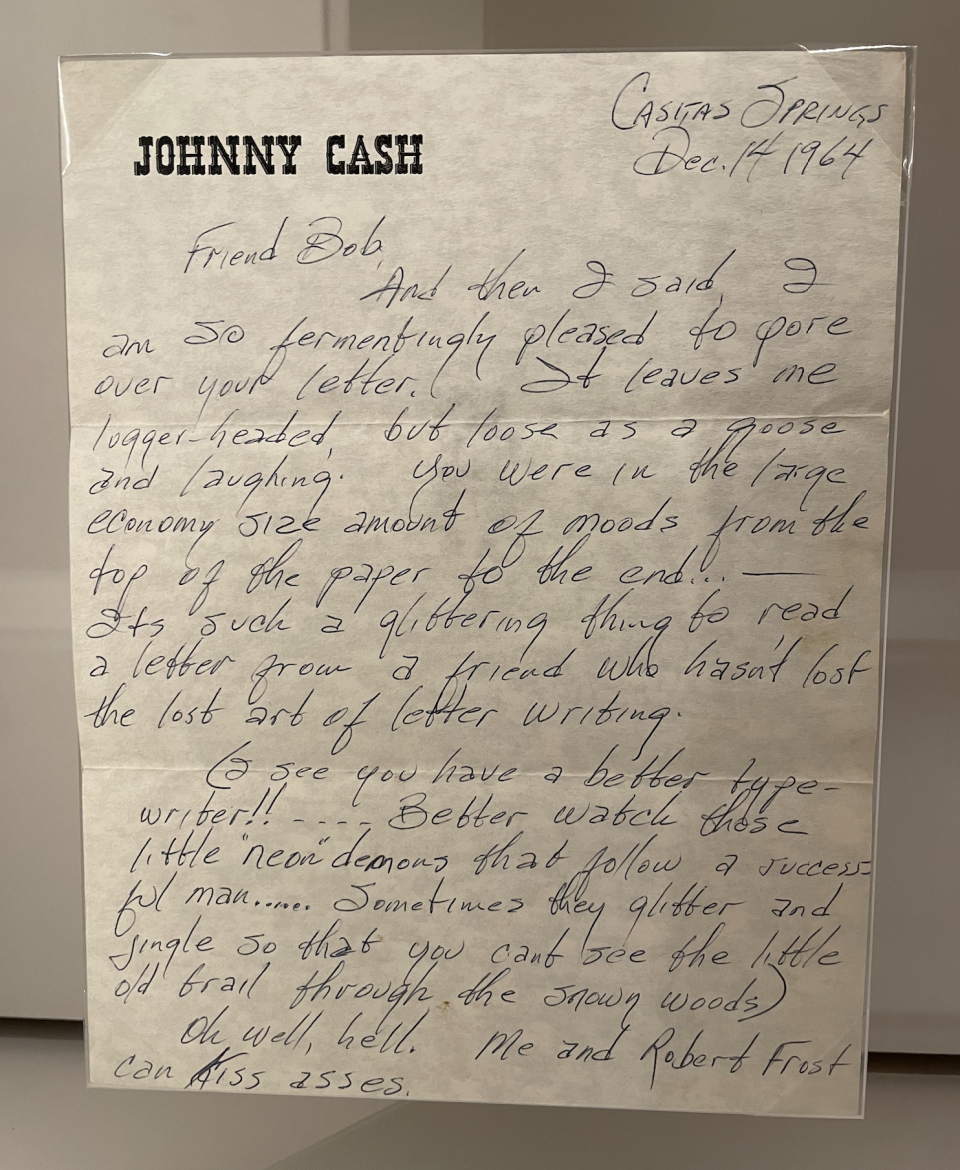 JOHNNY CASH
Casitas Springs
Dec. 14 1964
Friend Bob,
And then I said, I
am so fermentingly pleased to pore
over your letter. It leaves me
logger-headed, but loose as a goose
and laughing. You were in the large
economy size amount of moods from the
top of the paper to the end... —
Its such a glittering thing to read
a letter from a friend who hasn't lost
the lost art of letter writing.
(I see you have a better type-
writer!! ---- Better watch those
little "neon" demons that follow a success-
ful man...... Sometimes they glitter and
jingle so that you cant see the little
old trail through the snowy woods)
Oh well, hell. Me and Robert Frost
can kiss asses.